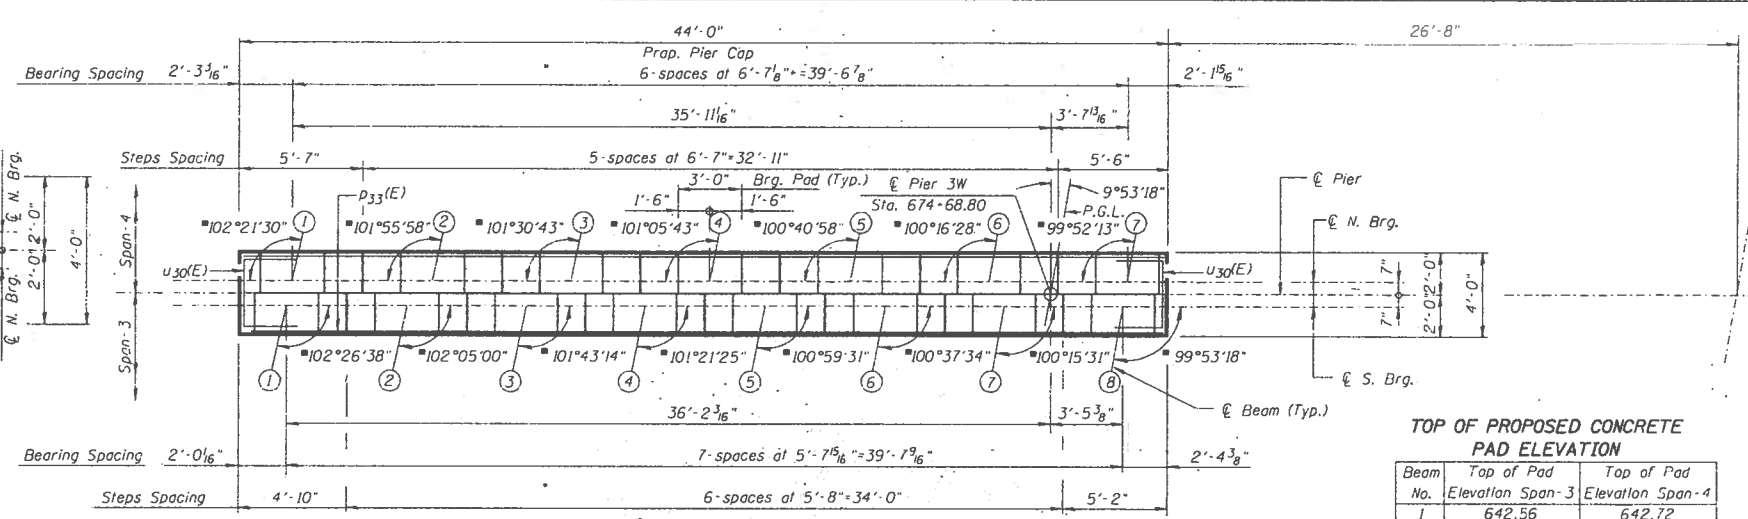 44'-0"
26'-8"
Prop. Pier Cap
Bearing Spacing 2'-3 3/16" 6-spaces at 6'-7 1/8"± =39'-6 7/8" 2'-1 15/16"
35'-11 1/16" 3'-7 13/16"
Steps Spacing 5'-7" 5-spaces at 6'-7"=32'-11" 5'-6"
3'-0" Brg. Pad (Typ.) ℄ Pier 3W 9°53'18"
℄ Pier
p33(E) 1'-6" 1'-6" Sta. 674+68.80 P.G.L.
■102°21'30" 1 ■101°55'58" 2 ■101°30'43" 3 ■101°05'43" 4 ■100°40'58" 5 ■100°16'28" 6 ■99°52'13" 7
℄ N. Brg.
℄ N. Brg. ℄ N. Brg.
2'-0" 2'-0"
4'-0"
Span-4
Span-3
u30(E) u30(E)
7" 7"
2'-0" 2'-0"
4'-0"
■102°26'38" ■102°05'00" ■101°43'14" ■101°21'25" ■100°59'31" ■100°37'34" ■100°15'31" ■99°53'18"
1 2 3 4 5 6 7 8
℄ S. Brg.
36'-2 3/16" 3'-5 3/8" ℄ Beam (Typ.)
Bearing Spacing 2'-0 1/16" 7-spaces at 5'-7 15/16"=39'-7 9/16" 2'-4 3/8"
Steps Spacing 4'-10" 6-spaces at 5'-8"=34'-0" 5'-2"
TOP OF PROPOSED CONCRETE
PAD ELEVATION
Beam No. Top of Pad Elevation Span-3 Top of Pad Elevation Span-4
1 642.56 642.72